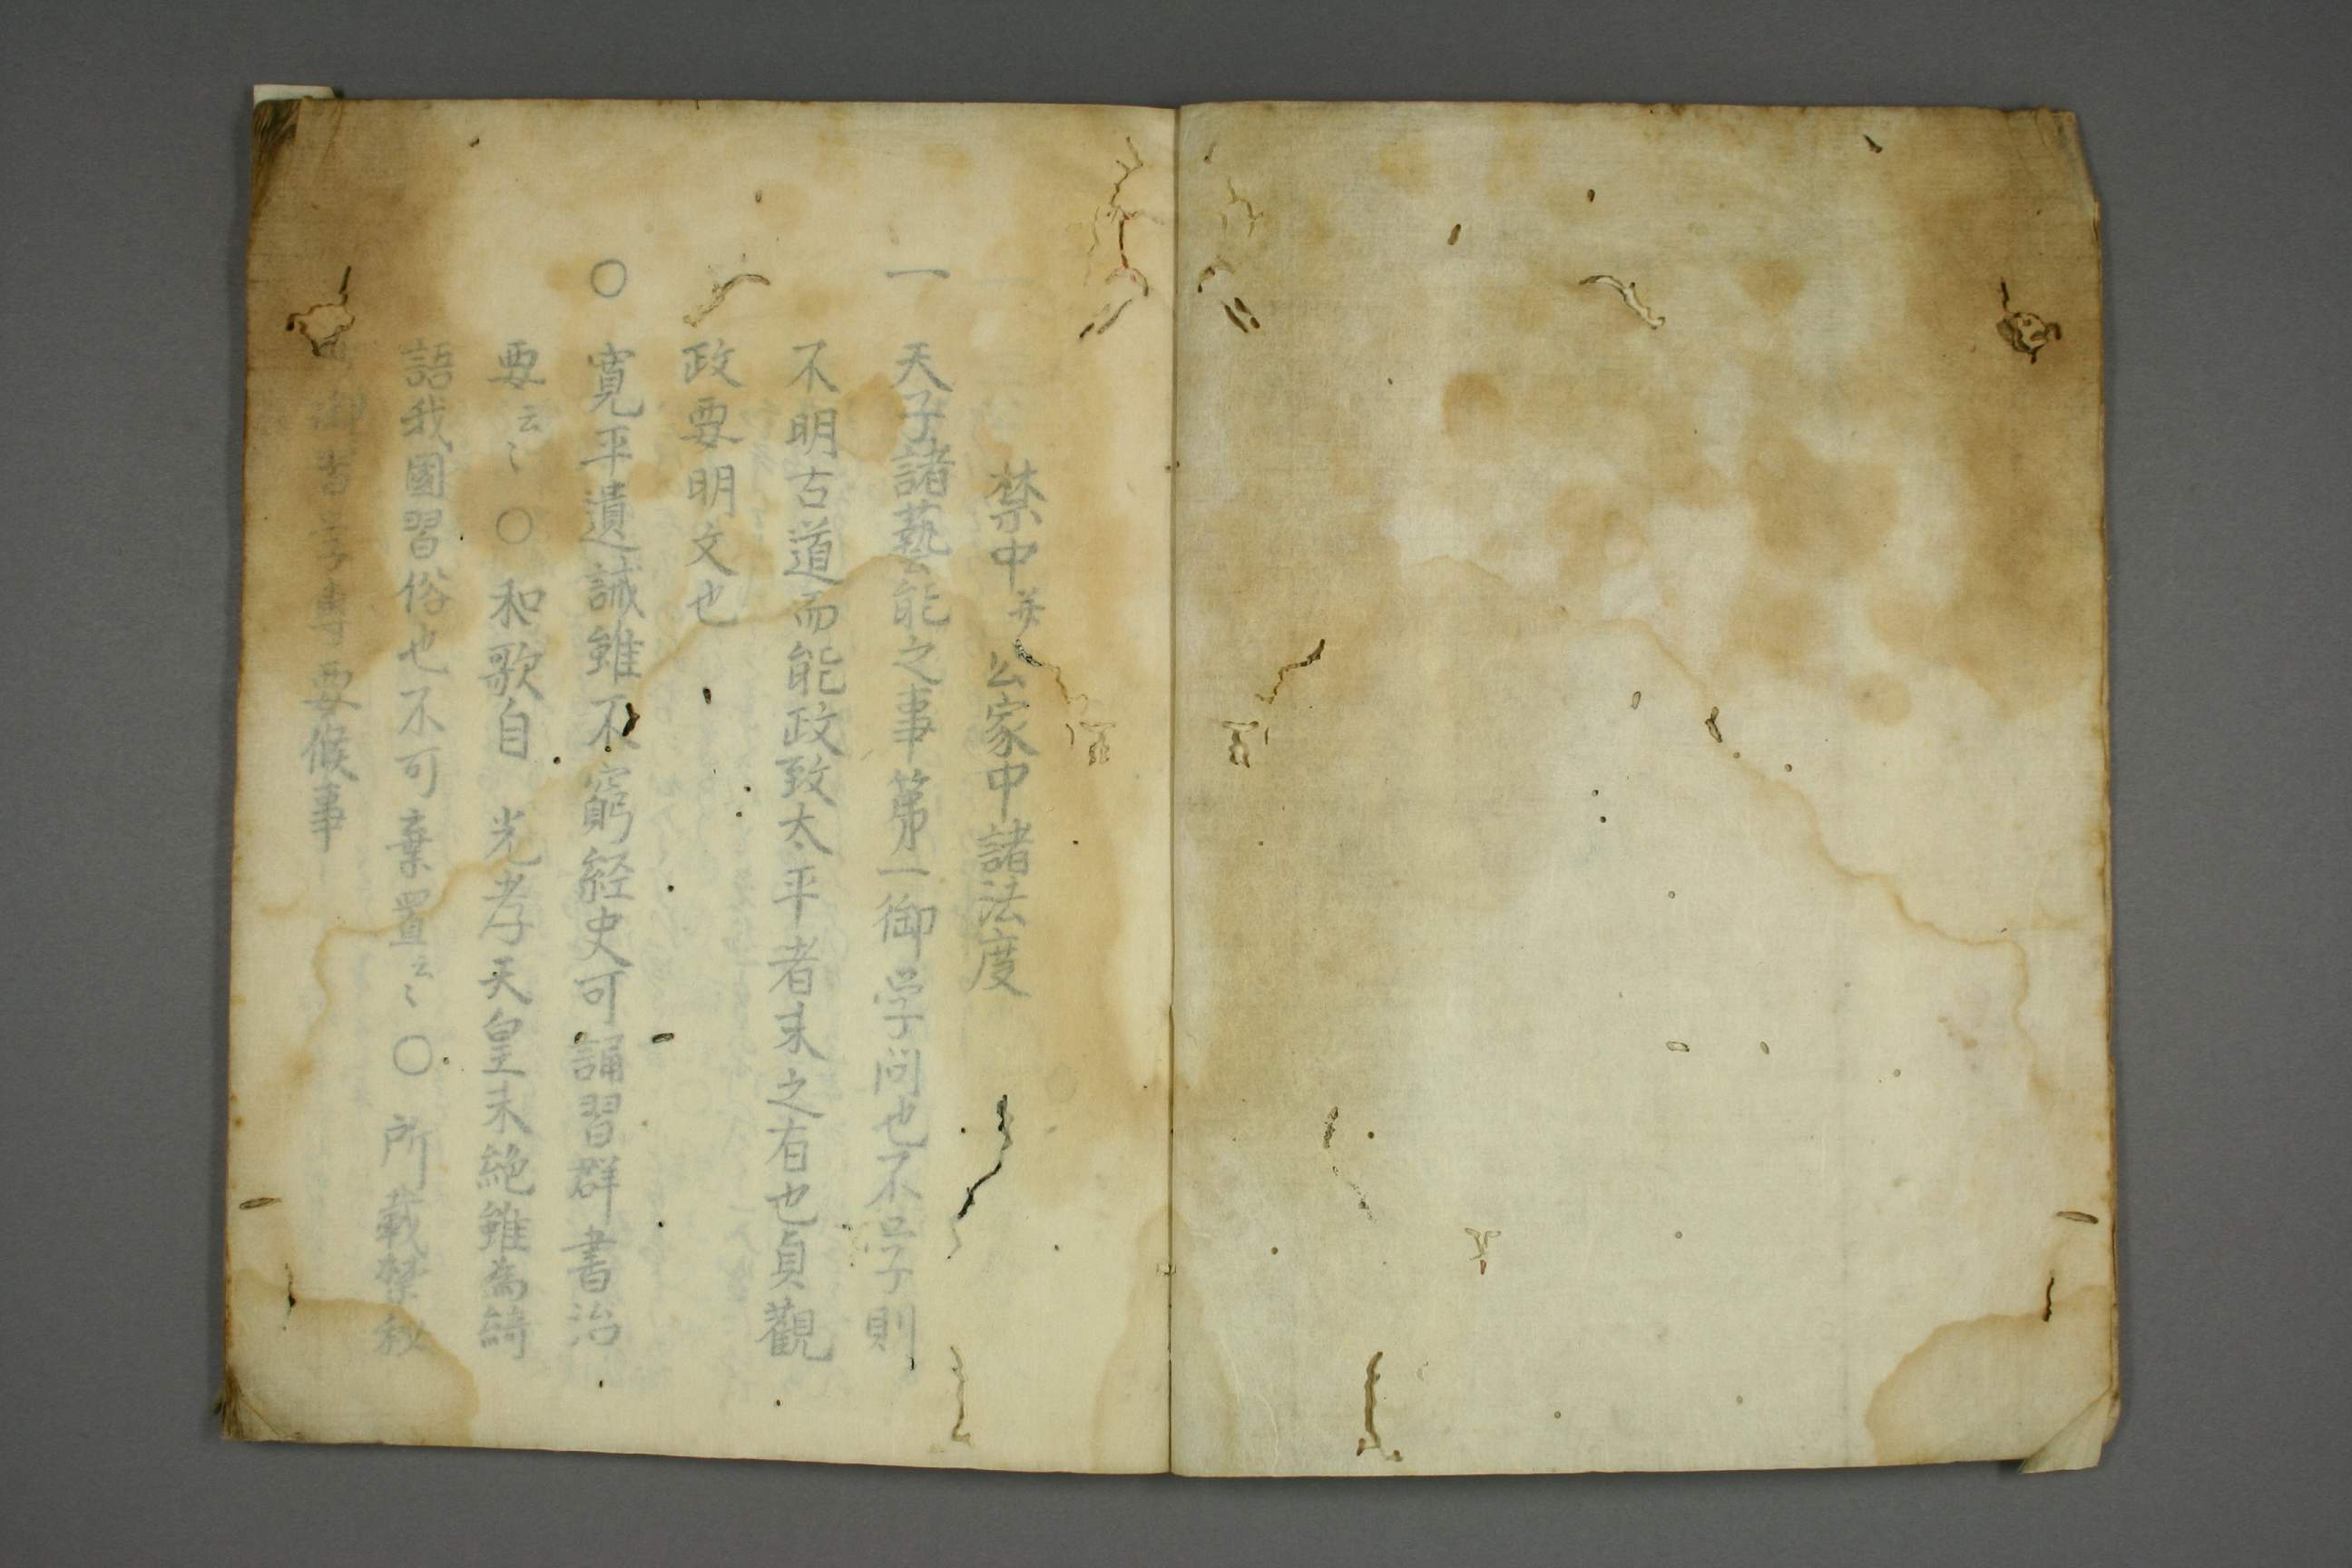 禁中并公家中諸法度
一 天子諸藝能之事第一御学問也不学則
不明古道而能政致太平者未之有也貞觀
政要明文也
○ 寛平遺誡雖不窮経史可誦習群書治
要云〻○和歌自 光孝天皇未絶雖為綺
語我國習俗也不可棄置云〻○所載禁秘
御習学専要候事